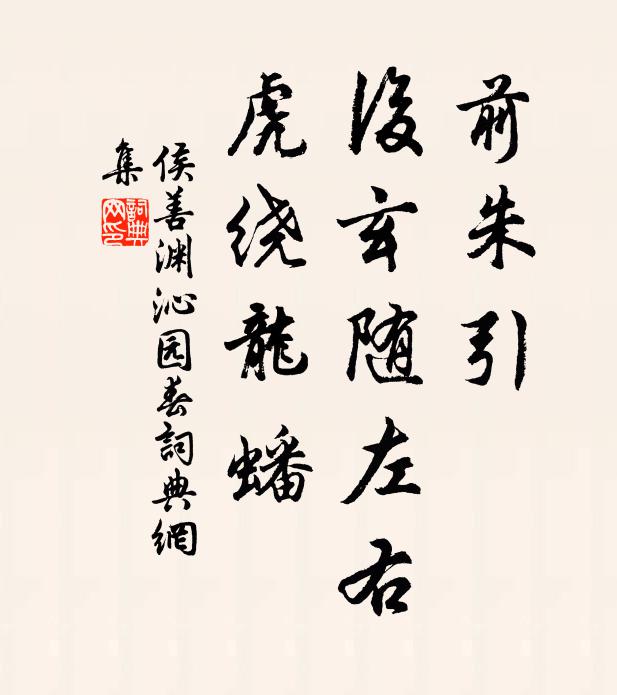 前朱引
後玄随左右
虎绕龍蟠
侯善渊沁园春詞典網
集
詞典
网印